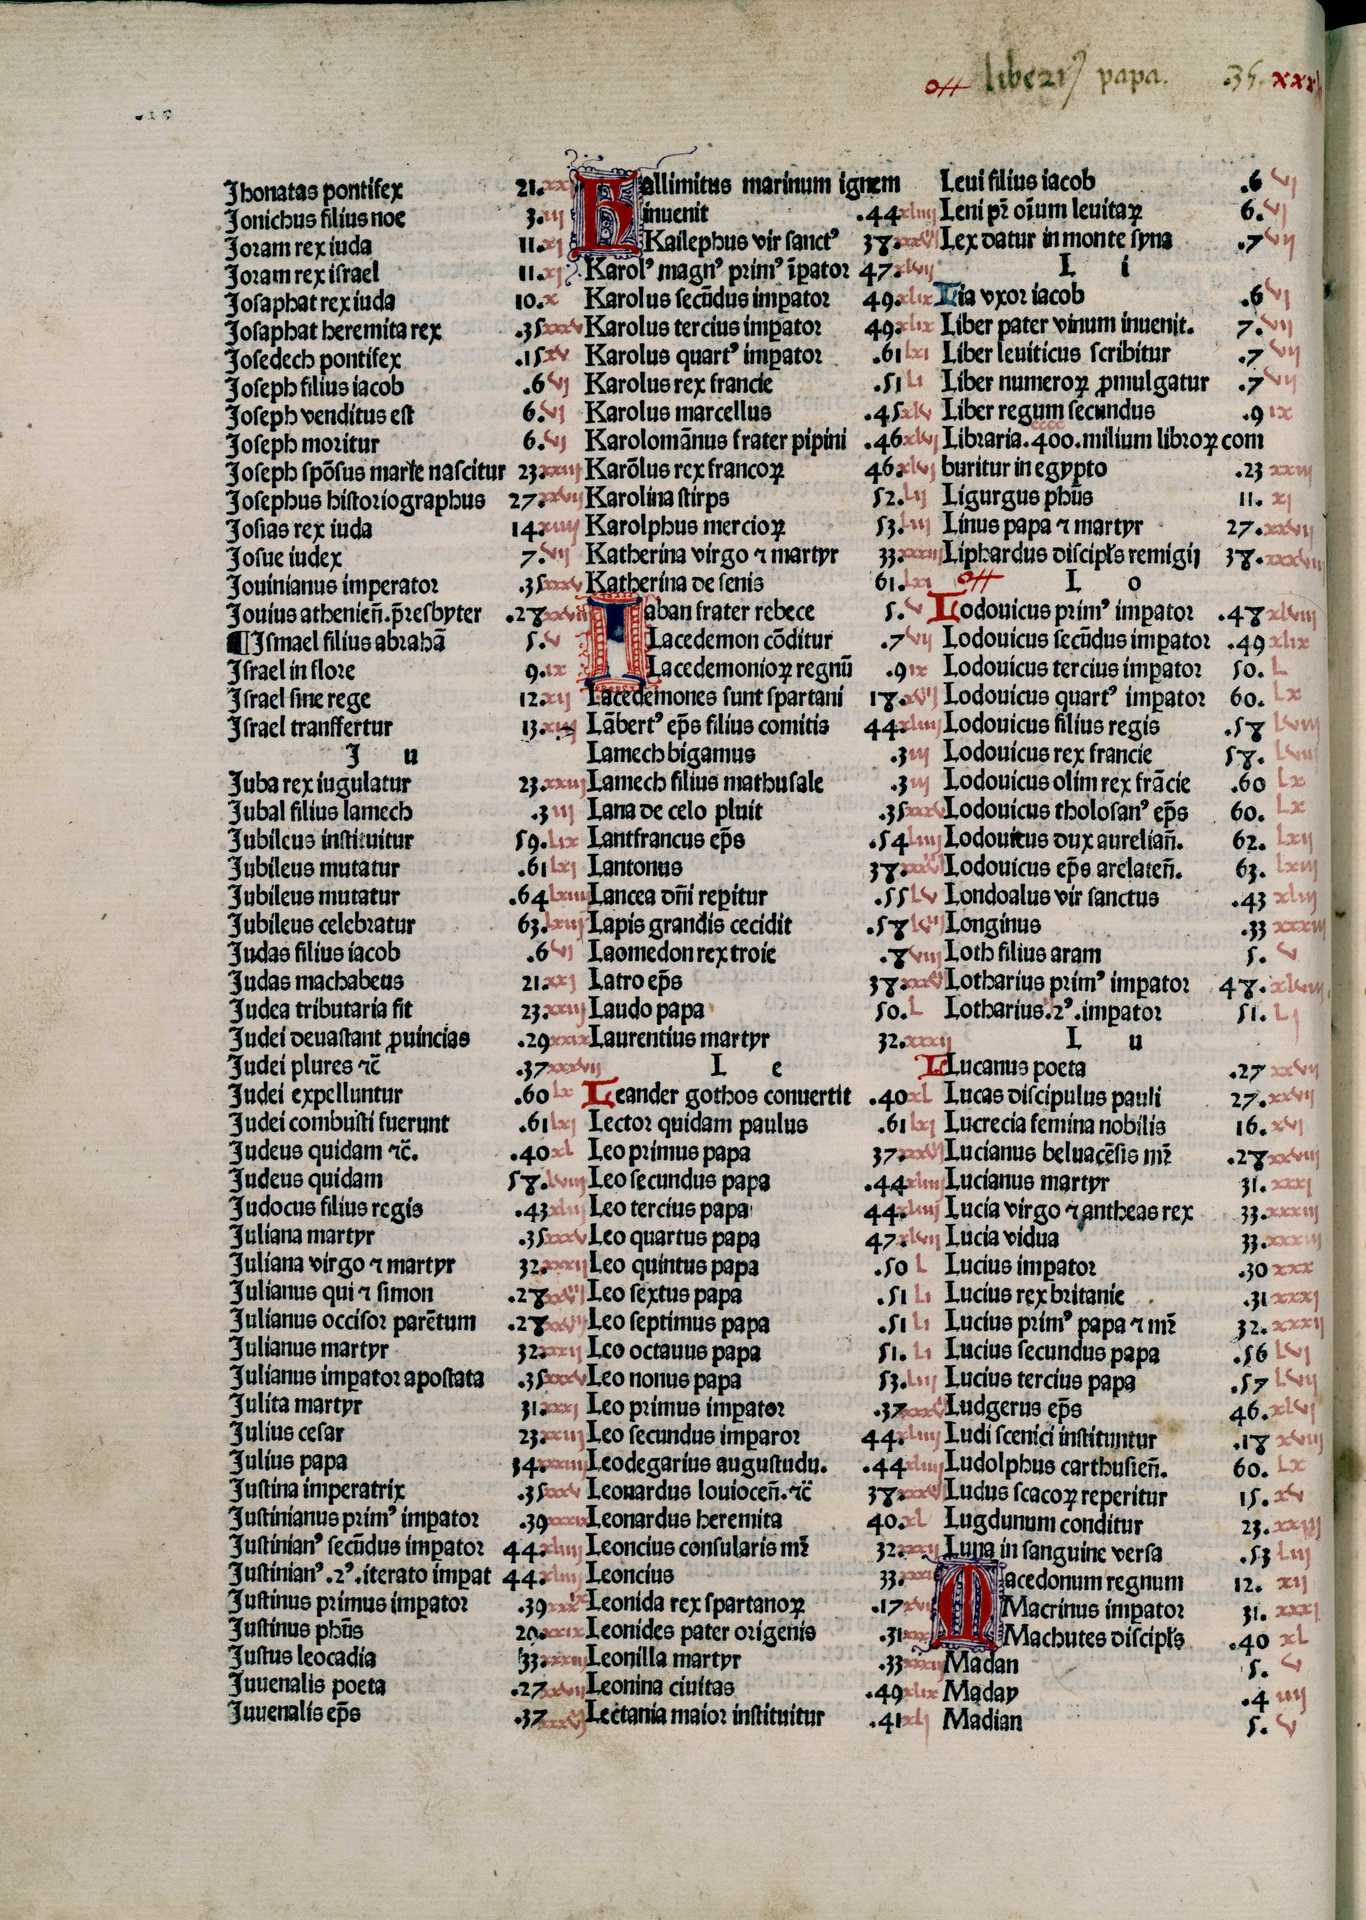 liberiꝰ papa. .35. xxx
Jhonatas pontifex 21. xxi
Jonichus filius noe 3. iii
Joram rex iuda 11. xi
Joram rex israel 11. xi
Josaphat rex iuda 10. x
Josaphat heremita rex .35 xxxv
Josedech pontifex .15 xv
Joseph filius iacob .6 vi
Joseph venditus est 6. vi
Joseph moritur 6. vi
Joseph spōsus marie nascitur 23 xxiii
Josephus historiographus 27. xxvii
Josias rex iuda 14. xiiii
Josue iudex 7. vii
Jouinianus imperator .35 xxxv
Jouius athenien̄. p̄resbyter .28 xxviii
¶Ismael filius abrahā 5. v
Israel in flore 9. ix
Israel sine rege 12. xii
Israel transffertur 13. xiii
J u
Juba rex iugulatur 23. xxiii
Jubal filius lamech .3 iii
Jubileus instituitur 59. lix
Jubileus mutatur .61 lxi
Jubileus mutatur .64 lxiiii
Jubileus celebratur 63. lxiii
Judas filius iacob .6 vi
Judas machabeus 21. xxi
Judea tributaria fit 23. xxiii
Judei deuastant ꝓuincias .29 xxix
Judei plures ⁊c̄ .37 xxxvii
Judei expelluntur .60 lx
Judei combusti fuerunt .61 lxi
Judeus quidam ⁊c̄. .40 xl
Judeus quidam 58. lviii
Judocus filius regis .43 xliii
Juliana martyr .35 xxxv
Juliana virgo ⁊ martyr 32 xxxii
Julianus qui ⁊ simon .28 xxviii
Julianus occisor parētum .28 xxviii
Julianus martyr 32 xxxii
Julianus imꝑator apostata .35 xxxv
Julita martyr 31. xxxi
Julius cesar 23. xxiii
Julius papa 34. xxxiiii
Justina imperatrix .35 xxxv
Justinianus primꝰ imꝑator .39 xxxix
Justinianꝰ secūdus imꝑator 44. xliiii
Justinianꝰ .2ꝰ. iterato imꝑat 44. xliiii
Justinus primus imꝑator .39 xxxix
Justinus ph̄us 20. xxix
Justus leocadia 33. xxxiii
Juuenalis poeta .27 xxvii
Juuenalis ep̄s .37 xxxvii
Kallimitus marinum ignem
inuenit .44 xliiii
Kailephus vir sanctꝰ 38. xxxviii
Karolꝰ magnꝰ primꝰ īꝑator 47. xlvii
Karolus secūdus imꝑator 49. xlix
Karolus tercius imꝑator 49. xlix
Karolus quartꝰ imꝑator .61 lxi
Karolus rex francie .51 li
Karolus marcellus .45 xlv
Karolomānus frater pipini .46 xlvi
Karōlus rex francoꝝ 46. xlvi
Karolina stirps 52. lii
Karolphus mercioꝝ 53. liii
Katherina virgo ⁊ martyr 33. xxxiii
Katherina de senis 61. lxi
Laban frater rebece 5. v
Lacedemon cōditur .7 vii
Lacedemonioꝝ regnū .9 ix
Lacedemones sunt spartani 18. xviii
Lābertꝰ ep̄s filius comitis 44. xliiii
Lamech bigamus .3 iii
Lamech filius mathusale .3 iii
Lana de celo pluit .35 xxxv
Lantfrancus ep̄s .54 liiii
Lantonus 38. xxxviii
Lancea dn̄i reꝑitur .55 lv
Lapis grandis cecidit .58 lviii
Laomedon rex troie .8 viii
Latro ep̄s 38. xxxviii
Laudo papa 50. l
Laurentius martyr 32. xxxii
L e
Leander gothos conuertit .40 xl
Lector quidam paulus .61 lxi
Leo primus papa 37. xxxvii
Leo secundus papa .44 xliiii
Leo tercius papa 44. xliiii
Leo quartus papa 47. xlvii
Leo quintus papa .50 l
Leo sextus papa .51 li
Leo septimus papa .51 li
Leo octauus papa 51. li
Leo nonus papa 53. liii
Leo primus imꝑator .37 xxxvii
Leo secundus imꝑaror 44. xliiii
Leodegarius augustudu. .44 xliiii
Leonardus louiocen̄. ⁊c̄ 38. xxxviii
Leonardus heremita 40. xl
Leoncius consularis mr̄ 32. xxxii
Leoncius 33. xxxiii
Leonida rex spartanoꝝ .17 xvii
Leonides pater origenis .31 xxxi
Leonilla martyr .33 xxxiii
Leonina ciuitas .49 xlix
Lectania maior instituitur .41 xli
Leui filius iacob .6 vi
Leni pr̄ oīum leuitaꝝ 6. vi
Lex datur in monte syna .7 vii
L i
Lia vxor iacob .6 vi
Liber pater vinum inuenit. 7. vii
Liber leuiticus scribitur .7 vii
Liber numeroꝝ ꝓmulgatur .7 vii
Liber regum secundus .9 ix
cccc
Libraria .400. milium libroꝝ com
buritur in egypto .23 xxiii
Ligurgus ph̄us 11. xi
Linus papa ⁊ martyr 27. xxvii
Liphardus discipl̄s remigij 38. xxxviii
L o
Lodouicus primꝰ imꝑator .48 xlviii
Lodouicus secūdus imꝑator .49 xlix
Lodouicus tercius imꝑator 50. L
Lodouicus quartꝰ imꝑator 60. Lx
Lodouicus filius regis .58 Lviii
Lodouicus rex francie 58. Lviii
Lodouicus olim rex frācie .60 Lx
Lodouicus tholosanꝰ ep̄s 60. Lx
Lodouicus dux aurelian̄. 62. Lxii
Lodouicus ep̄s arelaten̄. 63. Lxiii
Londoalus vir sanctus .43 xliii
Longinus .33 xxxiii
Loth filius aram 5. v
Lotharius primꝰ imꝑator 48. xlviii
Lotharius .2ꝰ. imꝑator 51. Li
L u
Lucanus poeta .27 xxvii
Lucas discipulus pauli 27. xxvii
Lucrecia femina nobilis 16. xvi
Lucianus beluacēsis mr̄ .28 xxviii
Lucianus martyr 31. xxxi
Lucia virgo ⁊ antheas rex 33. xxxiii
Lucia vidua 33. xxxiii
Lucius imꝑator .30 xxx
Lucius rex britanie .31 xxxi
Lucius primꝰ papa ⁊ mr̄ 32. xxxii
Lucius secundus papa .56 Lvi
Lucius tercius papa .57 Lvii
Ludgerus ep̄s 46. xlvi
Ludi scenici instituntur .18 xviii
Ludolphus carthusien̄. 60. Lx
Ludus scacoꝝ reperitur 15. xv
Lugdunum conditur 23. xxiii
Luna in sanguine versa .53 Liii
Macedonum regnum 12. xii
Macrinus imꝑator 31. xxxi
Machutes discipl̄s .40 xL
Madan 5. v
Maday .4 iiii
Madian 5. v